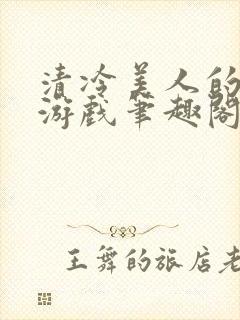 清冷美人的
游戏笔趣阁
王舞的旅店老